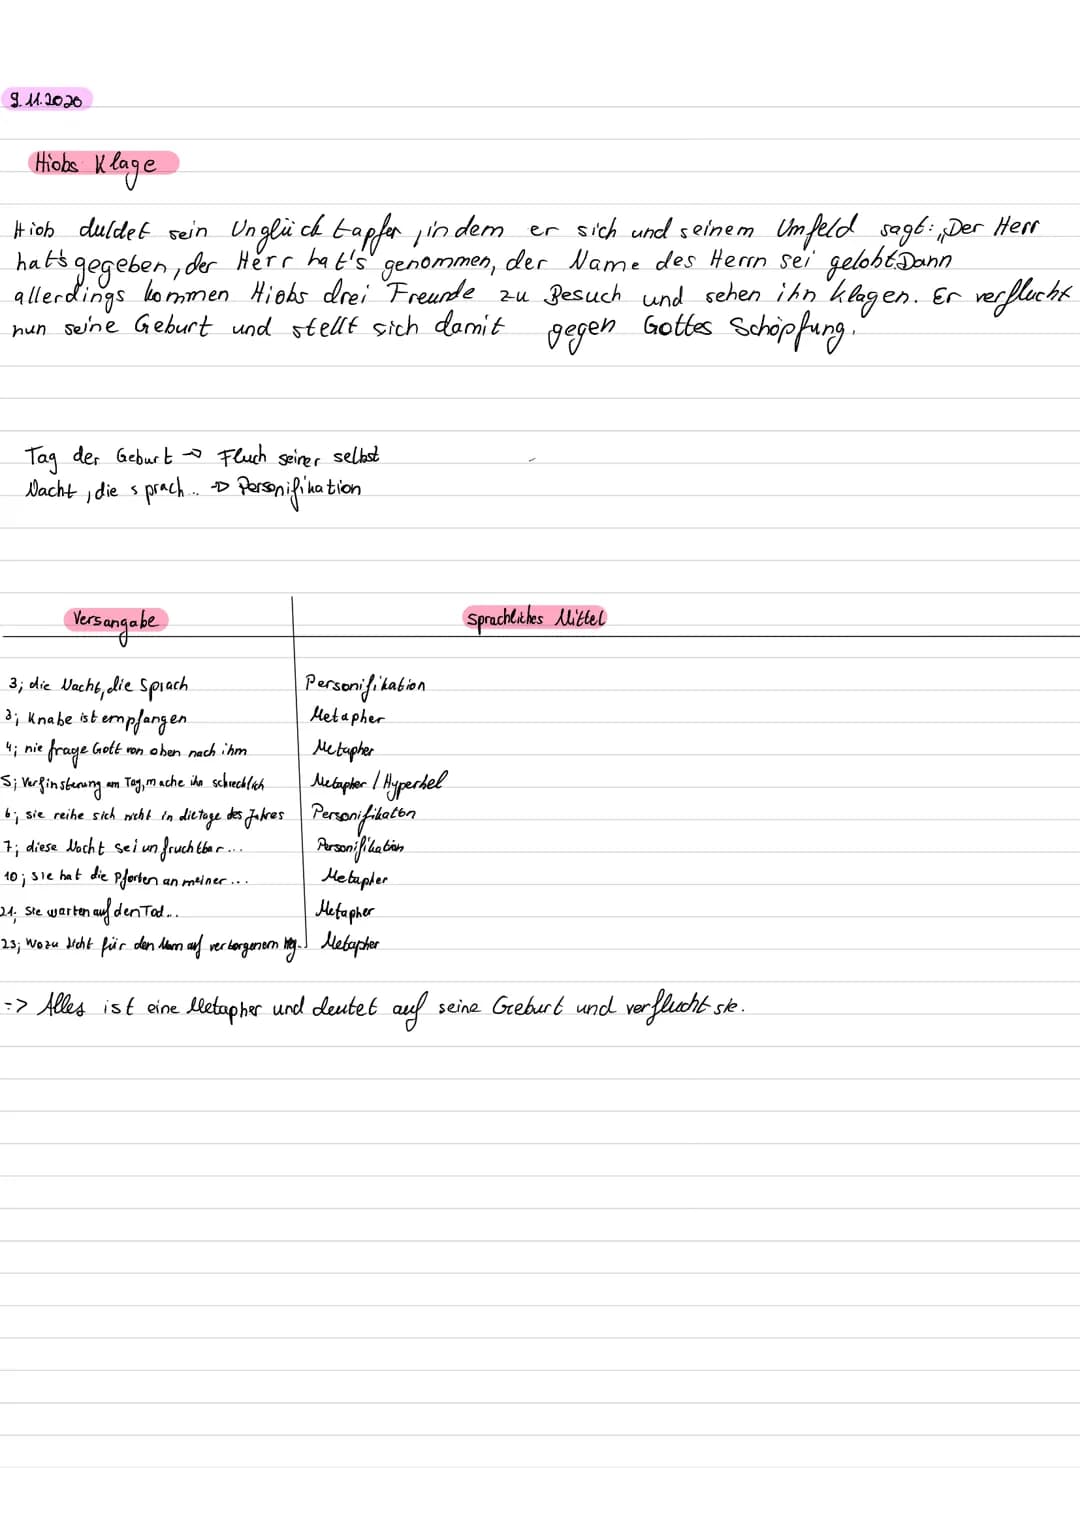 9.11.2020
Hiobs Klage
Hiob duldet sein Unglück tapfer, indem er sich und seinem Umfeld sagt: „Der Herr
hat's gegeben, der Herr hat's genommen, der Name des Herrn sei gelobt. Dann
allerdings kommen Hiobs drei Freunde zu Besuch und sehen ihn klagen. Er verflucht
nun seine Geburt und stellt sich damit gegen Gottes Schöpfung.
Tag der Geburt → Fluch seiner selbst
Nacht, die sprach.. → Personifikation
Versangabe Sprachliches Mittel
3; die Nacht, die Sprach Personifikation
3; Knabe ist empfangen Metapher
4; nie frage Gott von oben nach ihm Metapher
5; Verfinsterung am Tag, mache ihn schrecklich Metapher / Hyperbel
6; sie reihe sich nicht in die tage des Jahres Personifikation
7; diese Nacht sei unfruchtbar... Personifikation
10; sie hat die Pforten an meiner... Metapher
21; Sie warten auf den Tod... Metapher
23; Wozu Licht für den Mann auf verborgenem Weg.. Metapher
=> Alles ist eine Metapher und deutet auf seine Geburt und verflucht sie.